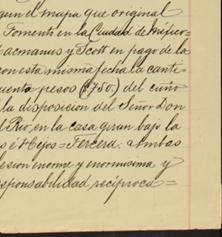 gun el mapa que original
Fomento en la Ciudad de Méjico=
acmanus y Scott en pago de la
con esta misma fecha la canti-
uenta pesos ($750.) del cuño
la disposicion del Señor Don
l Rio, en la casa gran bajo la
s é Hijos = Tercera. Ambas
esion enorme y enormisima y
esponsabilidad recíproca=